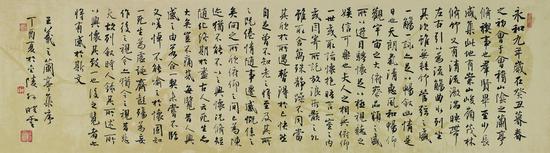 永和九年歲在癸丑暮春
之初會于會稽山陰之蘭亭
脩禊事也羣賢畢至少長
咸集此地有崇山峻領茂林
脩竹又有清流激湍映帶
左右引以為流觴曲水列坐
其次雖無絲竹管弦之盛
一觴一詠亦足以暢敘幽情是
日也天朗氣清惠風和暢仰
觀宇宙之大俯察品類之盛
所以遊目騁懷足以極視聽之
娛信可樂也夫人之相與俯仰
一世或取諸懷抱悟言一室之內
或因寄所託放浪形骸之外
雖趣舍萬殊靜躁不同當其
欣於所遇暫得於己快然自
足不知老之將至及其所
之既倦情隨事遷感慨係之
矣向之所欣俛仰之間已為陳
迹猶不能不以之興懷況脩短
隨化終期於盡古人云死生亦
大矣豈不痛哉每覽昔人興
感之由若合一契未嘗不臨
文嗟悼不能喻之於懷固知一
死生為虛誕齊彭殤為妄
作後之視今亦猶今之視昔悲
夫故列敘時人錄其所述雖世殊事異所
以興懷其致一也後之覽者亦
將有感於斯文
王羲之蘭亭集序
丁酉夏於金陵孫曉雲